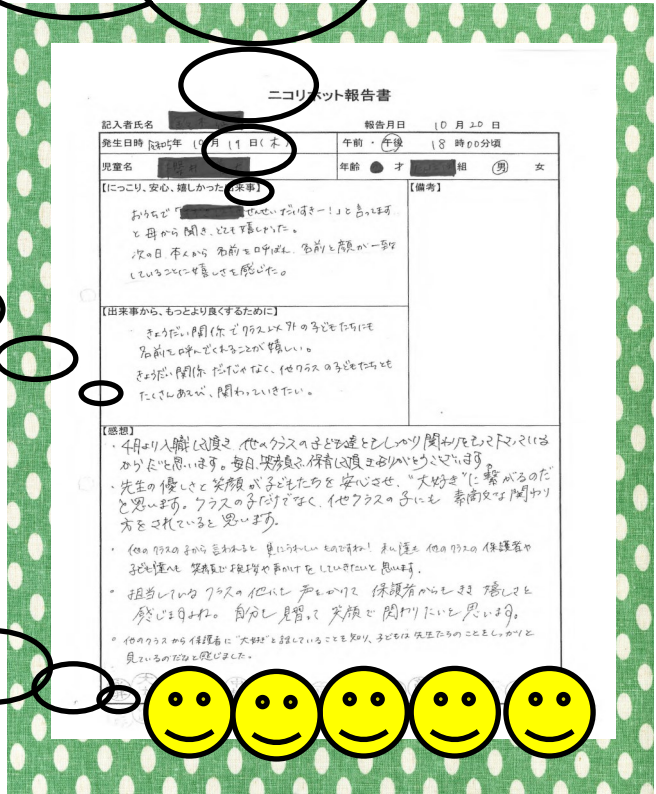 ニコリホット報告書
記入者氏名 報告月日 10月20日
発生日時 令和5年 10月19日(木) 午前・午後 18時00分頃
児童名 年齢 才 組 男 女
【にっこり、安心、嬉しかった出来事】 【備考】
おうちで「 せんせいだいすきー！」と言ってます
と母から聞き、とても嬉しかった。
次の日、本人から名前を呼ばれ、名前と顔が一致
していることに嬉しさを感じた。
【出来事から、もっとより良くするために】
きょうだい関係でクラス以外の子どもたちにも
名前を呼んでくれることが嬉しい。
きょうだい関係だけじゃなく、他クラスの子どもたちとも
たくさんあそび、関わっていきたい。
【感想】
・4月より入職して頂き、他のクラスの子ども達ともしっかり関わりをもって下さっている
からだと思います。毎日、笑顔で保育して頂きありがとうございます。
・先生の優しさと笑顔が子どもたちを安心させ、"大好き"に繋がるのだ
と思います。クラスの子だけでなく、他クラスの子にも素敵な関わり
方をされていると思います。
・他のクラスの子から言われると更にうれしいものですね！私達も他のクラスの保護者や
子ども達へも笑顔で挨拶や声かけをしていきたいと思います。
・担当しているクラスの他にも声をかけて保護者からもきき嬉しさと
感じますよね。自分も見習って笑顔で関わりたいと思います。
・他のクラスから保護者に"大好き"と話していることを知り、子どもは先生たちのことをしっかりと
見ているのだなと感じました。